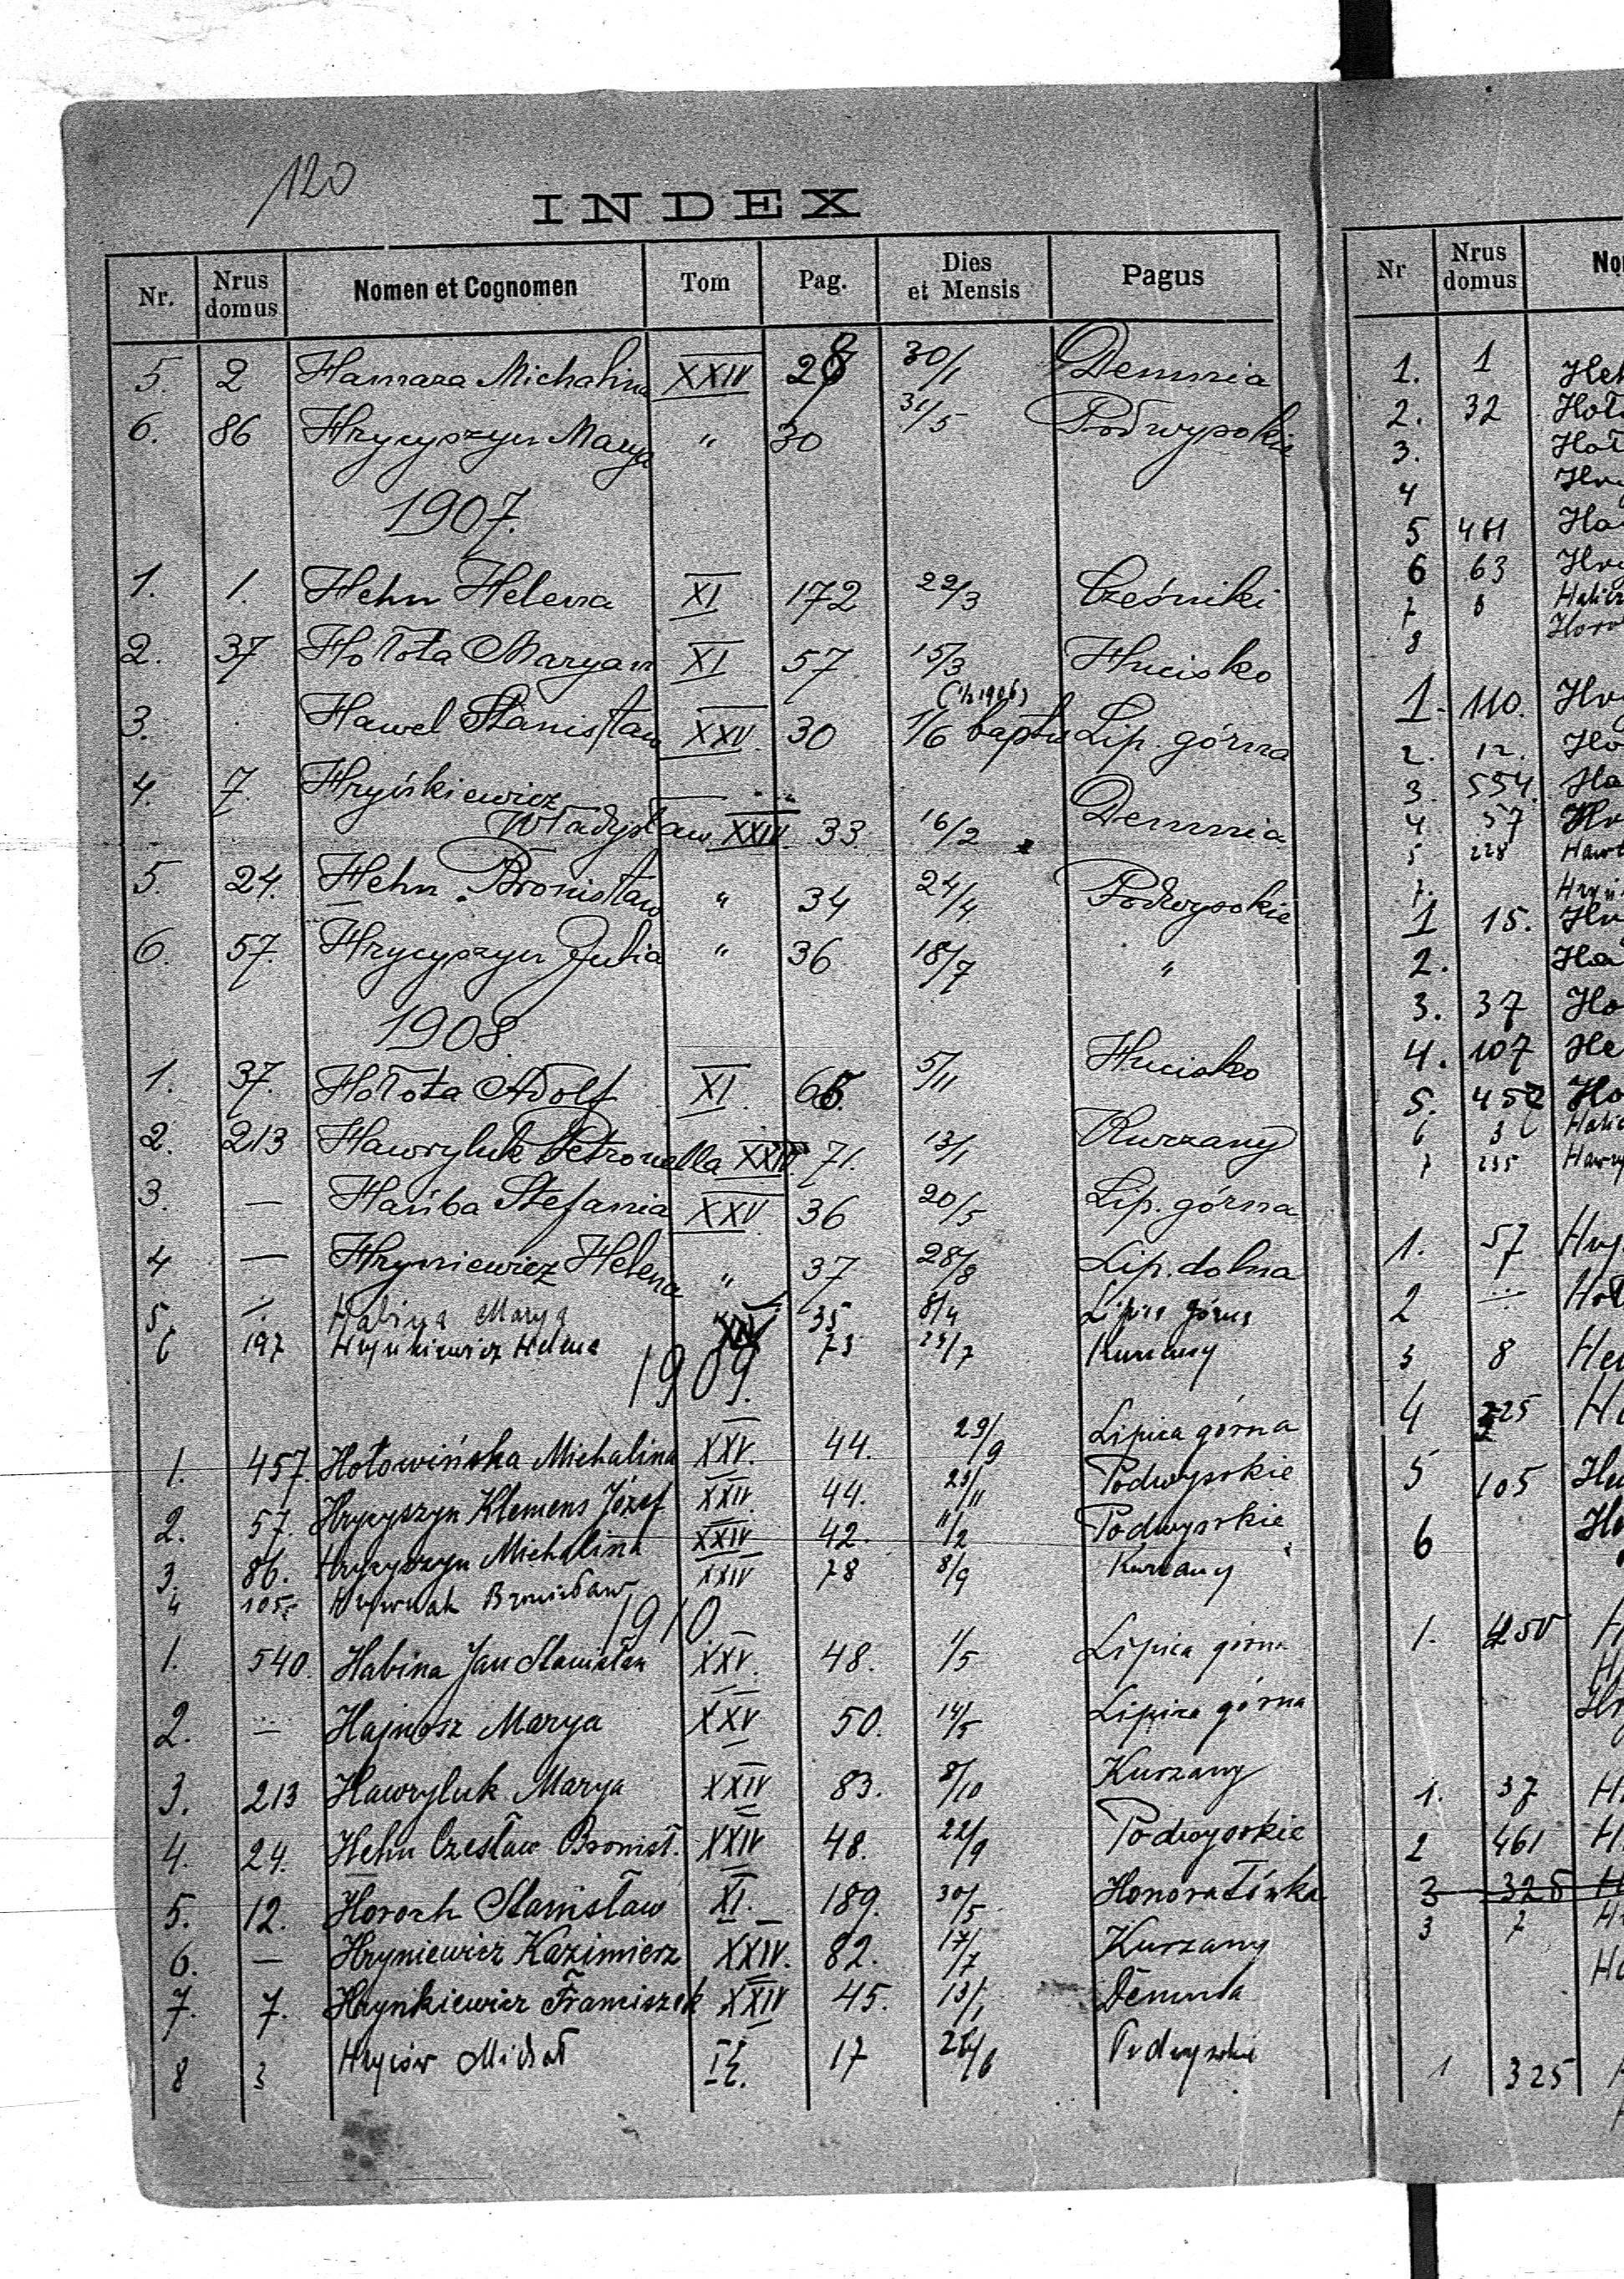 120
INDEX
Nr. Nrus domus Nomen et Cognomen Tom Pag. Dies et Mensis Pagus
5. 2 Hamara Michalina XXIV 28 30/1 Demnia
6. 86 Hrycyszyn Marya " 30 31/5 Podwysokie
1907.
1. 1. Hehn Helena XI 172 22/3 Cześniki
2. 37 Hołota Maryan XI 57. 15/3 Hucisko
3. Hawel Stanisław XXV. 30 1/6 baptus Lip. górna
4. 7. Hryńkiewicz
Władysław XXIV. 33. 16/2 Demnia
5. 24. Hehn Bronisław " 34 24/4 Podwysokie
6. 57. Hrycyszyn Julia " 36 18/7 "
1908.
1. 37. Hołota Adolf XI. 5/11 Hucisko
2. 213 Hawryluk Petronella XXIV 71. 13/1 Kurzany
3. — Hańba Stefania XXV 36 20/5 Lip. górna
4 — Hryniewicz Helena " 37 28/8 Lip. dolna
5. Habina Marya 35 8/4 Lipica górna
6 197 Hrynkiewicz Helena 73 Kurzany
1909.
1. 457. Hołowińska Michalina XXV. 44. 29/9 Lipica górna
2. 57. Hrycyszyn Klemens Józef XXIV. 44. 23/11 Podwysokie
3. 86. Hrycyszyn Michalina XXIV 42. 11/2 Podwysokie
4 105 Bronisław XXIV 78 8/9 Kurzany
1910
1. 540. Habina Jan Stanisław XXV. 48. 1/5 Lipica górna
2. — Hajnosz Marya XXV 50. 14/5 Lipica górna
3. 213 Hawryluk Marya XXIV 83. 8/10 Kurzany
4. 24. Hehn Czesław Bronisł. XXIV 48. 22/9 Podwysokie
5. 12. Horoch Stanisław XI. 189. 30/5 Honoratówka
6. — Hryniewicz Kazimierz XXIV. 82. 17/7 Kurzany
7. 7. Hrynkiewicz Franciszek XXIV 45. 13/1 Demnia
8 3 Hryców Michał 17 Podwysokie
Nr Nrus domus
1. 1
2. 32
3.
4
5 461
6 63
7
8
1. 110.
2. 12.
3. 554.
4 57
5 228
7.
1 15.
2.
3. 37
4. 107
5. 452
6
7 235
1. 57
2
3 8
4
5 105
6
1. 250
1. 37
2 461
3 328
3 7
1 325